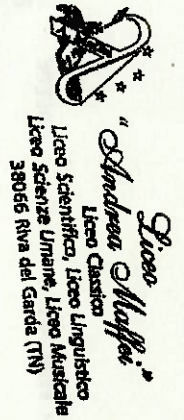 Liceo
"Andrea Maffei"
Liceo Classico
Liceo Scientifico, Liceo Linguistico
Liceo Scienze Umane, Liceo Musicale
38066 Riva del Garda (TN)